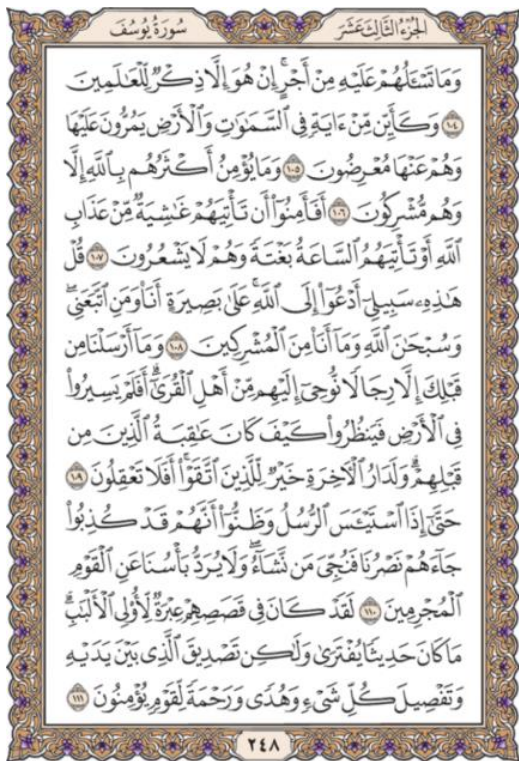 الجزء الثالث عشر سورة يوسف
وَمَا تَسْـَٔلُهُمْ عَلَيْهِ مِنْ أَجْرٍۚ إِنْ هُوَ إِلَّا ذِكْرٌ لِّلْعَٰلَمِينَ
۝١٠٤ وَكَأَيِّن مِّنْ ءَايَةٍ فِي ٱلسَّمَٰوَٰتِ وَٱلْأَرْضِ يَمُرُّونَ عَلَيْهَا
وَهُمْ عَنْهَا مُعْرِضُونَ ۝١٠٥ وَمَا يُؤْمِنُ أَكْثَرُهُم بِٱللَّهِ إِلَّا
وَهُم مُّشْرِكُونَ ۝١٠٦ أَفَأَمِنُوٓا۟ أَن تَأْتِيَهُمْ غَٰشِيَةٌ مِّنْ عَذَابِ
ٱللَّهِ أَوْ تَأْتِيَهُمُ ٱلسَّاعَةُ بَغْتَةً وَهُمْ لَا يَشْعُرُونَ ۝١٠٧ قُلْ
هَٰذِهِۦ سَبِيلِيٓ أَدْعُوٓا۟ إِلَى ٱللَّهِۚ عَلَىٰ بَصِيرَةٍ أَنَا۠ وَمَنِ ٱتَّبَعَنِيۖ
وَسُبْحَٰنَ ٱللَّهِ وَمَآ أَنَا۠ مِنَ ٱلْمُشْرِكِينَ ۝١٠٨ وَمَآ أَرْسَلْنَا مِن
قَبْلِكَ إِلَّا رِجَالًا نُّوحِيٓ إِلَيْهِم مِّنْ أَهْلِ ٱلْقُرَىٰٓۗ أَفَلَمْ يَسِيرُوا۟
فِي ٱلْأَرْضِ فَيَنظُرُوا۟ كَيْفَ كَانَ عَٰقِبَةُ ٱلَّذِينَ مِن
قَبْلِهِمْۗ وَلَدَارُ ٱلْءَاخِرَةِ خَيْرٌ لِّلَّذِينَ ٱتَّقَوْا۟ۗ أَفَلَا تَعْقِلُونَ ۝١٠٩
حَتَّىٰٓ إِذَا ٱسْتَيْـَٔسَ ٱلرُّسُلُ وَظَنُّوٓا۟ أَنَّهُمْ قَدْ كُذِبُوا۟
جَآءَهُمْ نَصْرُنَا فَنُجِّيَ مَن نَّشَآءُۖ وَلَا يُرَدُّ بَأْسُنَا عَنِ ٱلْقَوْمِ
ٱلْمُجْرِمِينَ ۝١١٠ لَقَدْ كَانَ فِي قَصَصِهِمْ عِبْرَةٌ لِّأُو۟لِي ٱلْأَلْبَٰبِۗ
مَا كَانَ حَدِيثًا يُفْتَرَىٰ وَلَٰكِن تَصْدِيقَ ٱلَّذِي بَيْنَ يَدَيْهِ
وَتَفْصِيلَ كُلِّ شَيْءٍ وَهُدًى وَرَحْمَةً لِّقَوْمٍ يُؤْمِنُونَ ۝١١١
٢٤٨